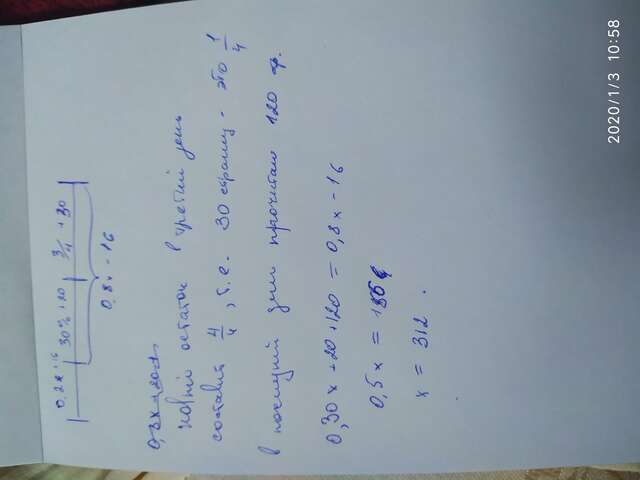 0,2x+16 30%+20 3/4 +30
0,8x-16
новый остаток в третий день
составил 4/4, т.е. 30 страниц - это 1/4
в последний день прочитано 120 стр.
0,30x+20+120=0,8x-16
0,5x=156
x=312.
2020/1/3 10:58